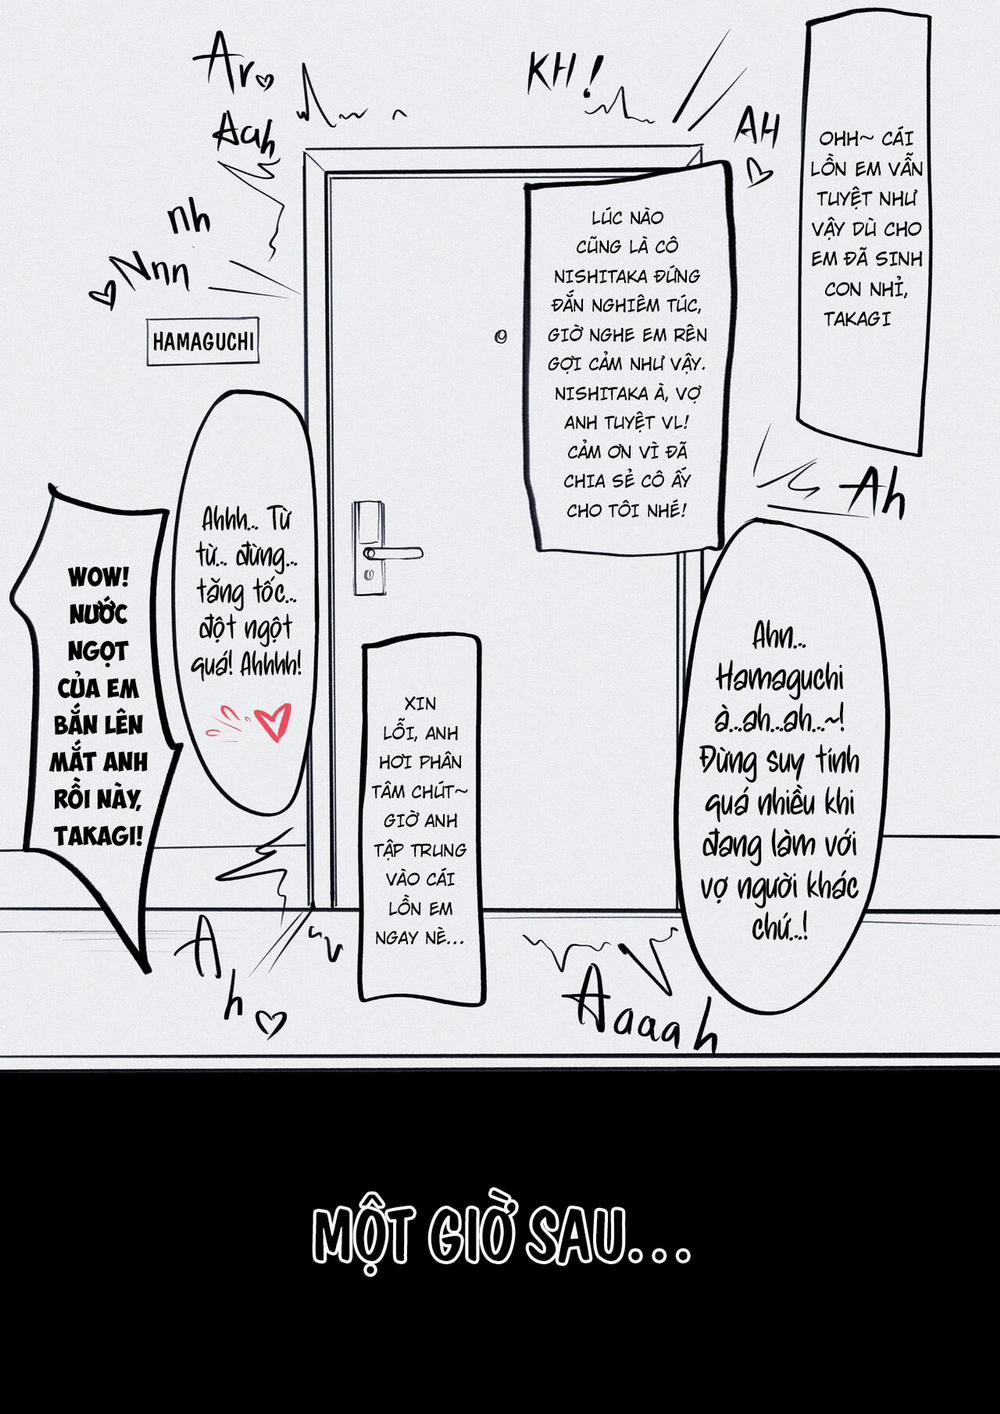 Ar
Aah
KH!
AH
nh
Nnn
HAMAGUCHI
OHH~ CÁI
LỒN EM VẪN
TUYỆT NHƯ
VẬY DÙ CHO
EM ĐÃ SINH
CON NHỈ,
TAKAGI
LÚC NÀO
CŨNG LÀ CÔ
NISHITAKA ĐỨNG
ĐẮN NGHIÊM TÚC,
GIỜ NGHE EM RÊN
GỢI CẢM NHƯ VẬY.
NISHITAKA À, VỢ
ANH TUYỆT VL!
CẢM ƠN VÌ ĐÃ
CHIA SẺ CÔ ẤY
CHO TÔI NHÉ!
Ah
Ahhh... Từ
từ... đừng...
tăng tốc...
đột ngột
quá! Ahhhh!
WOW!
NƯỚC
NGỌT
CỦA EM
BẮN LÊN
MẮT ANH
RỒI NÀY,
TAKAGI!
Ahn...
Hamaguchi
à...ah...ah...~!
Đừng suy tính
quá nhiều khi
đang làm với
vợ người khác
chứ...!
XIN
LỖI, ANH
HƠI PHÂN
TÂM CHÚT~
GIỜ ANH
TẬP TRUNG
VÀO CÁI
LỒN EM
NGAY NÈ...
Ah
Aaaah
MỘT GIỜ SAU...